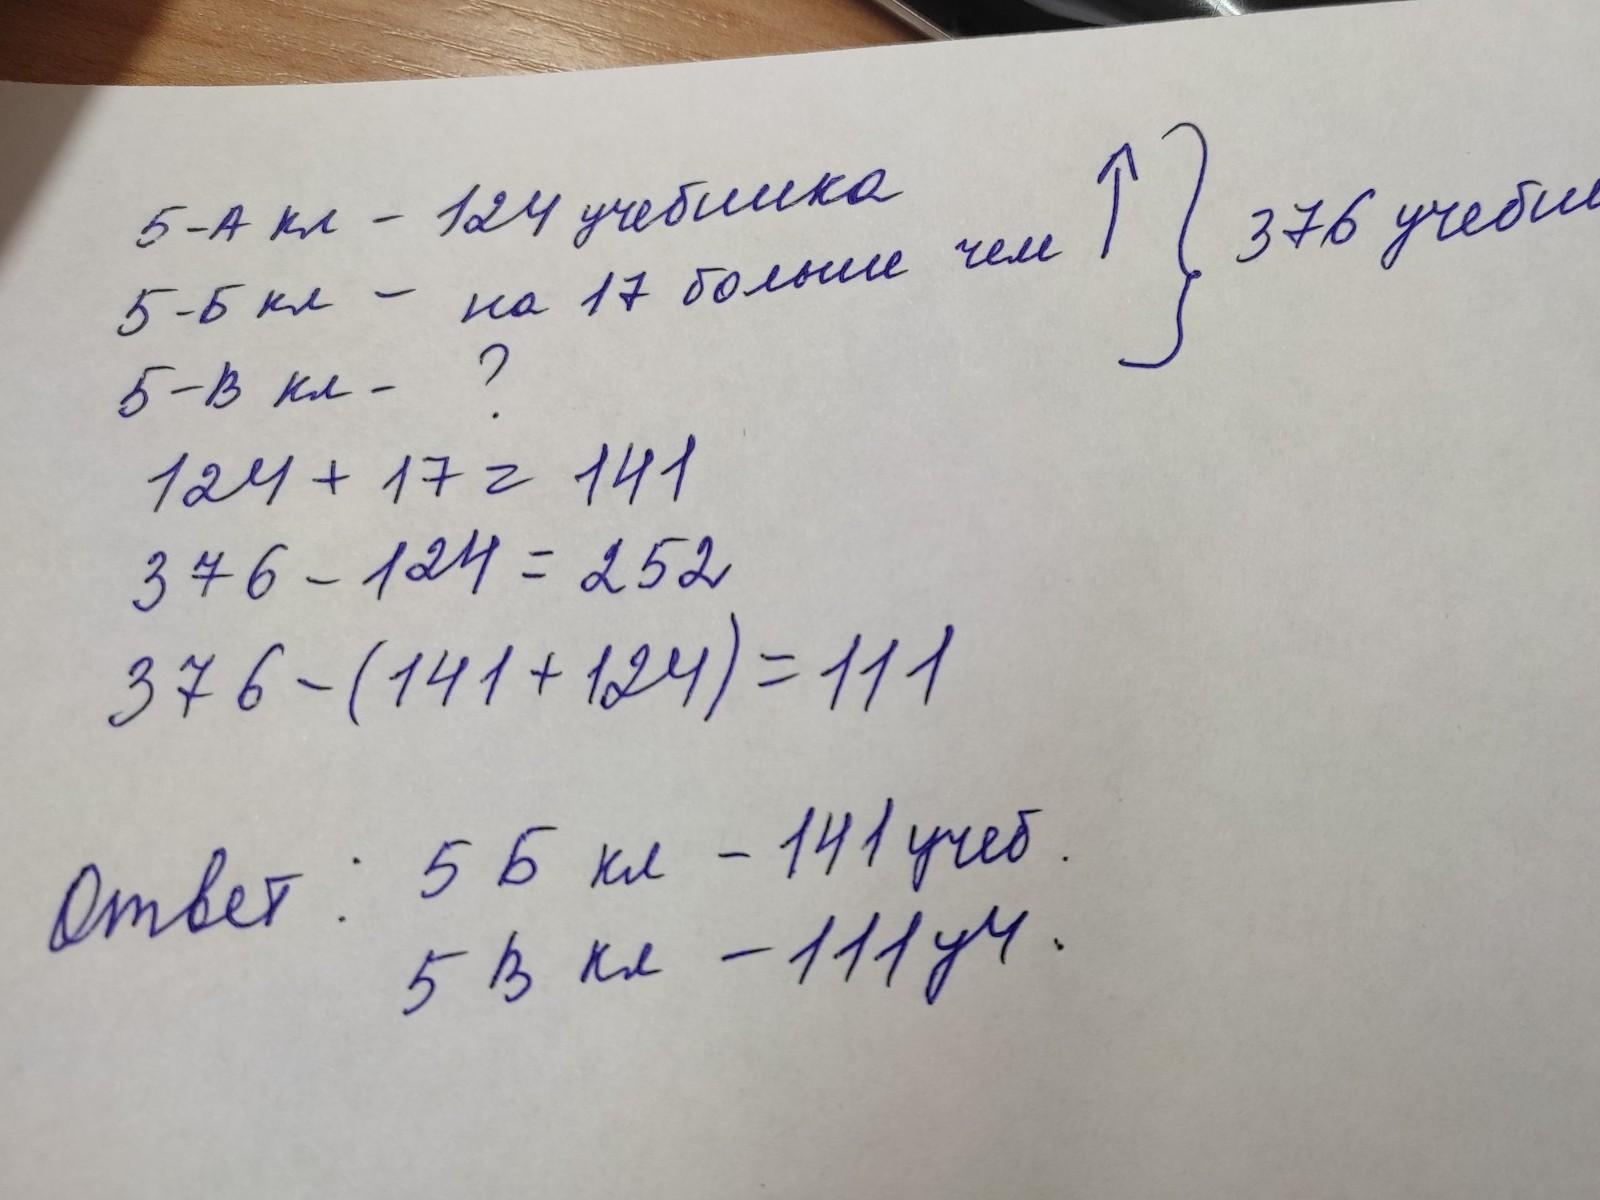 5-А кл - 124 учебника
5-Б кл - на 17 больше чем ↑ } 376
5-В кл - ?
124 + 17 = 141
376 - 124 = 252
376 - (141 + 124) = 111
Ответ: 5 Б кл - 141 учеб.
5 В кл - 111 уч.